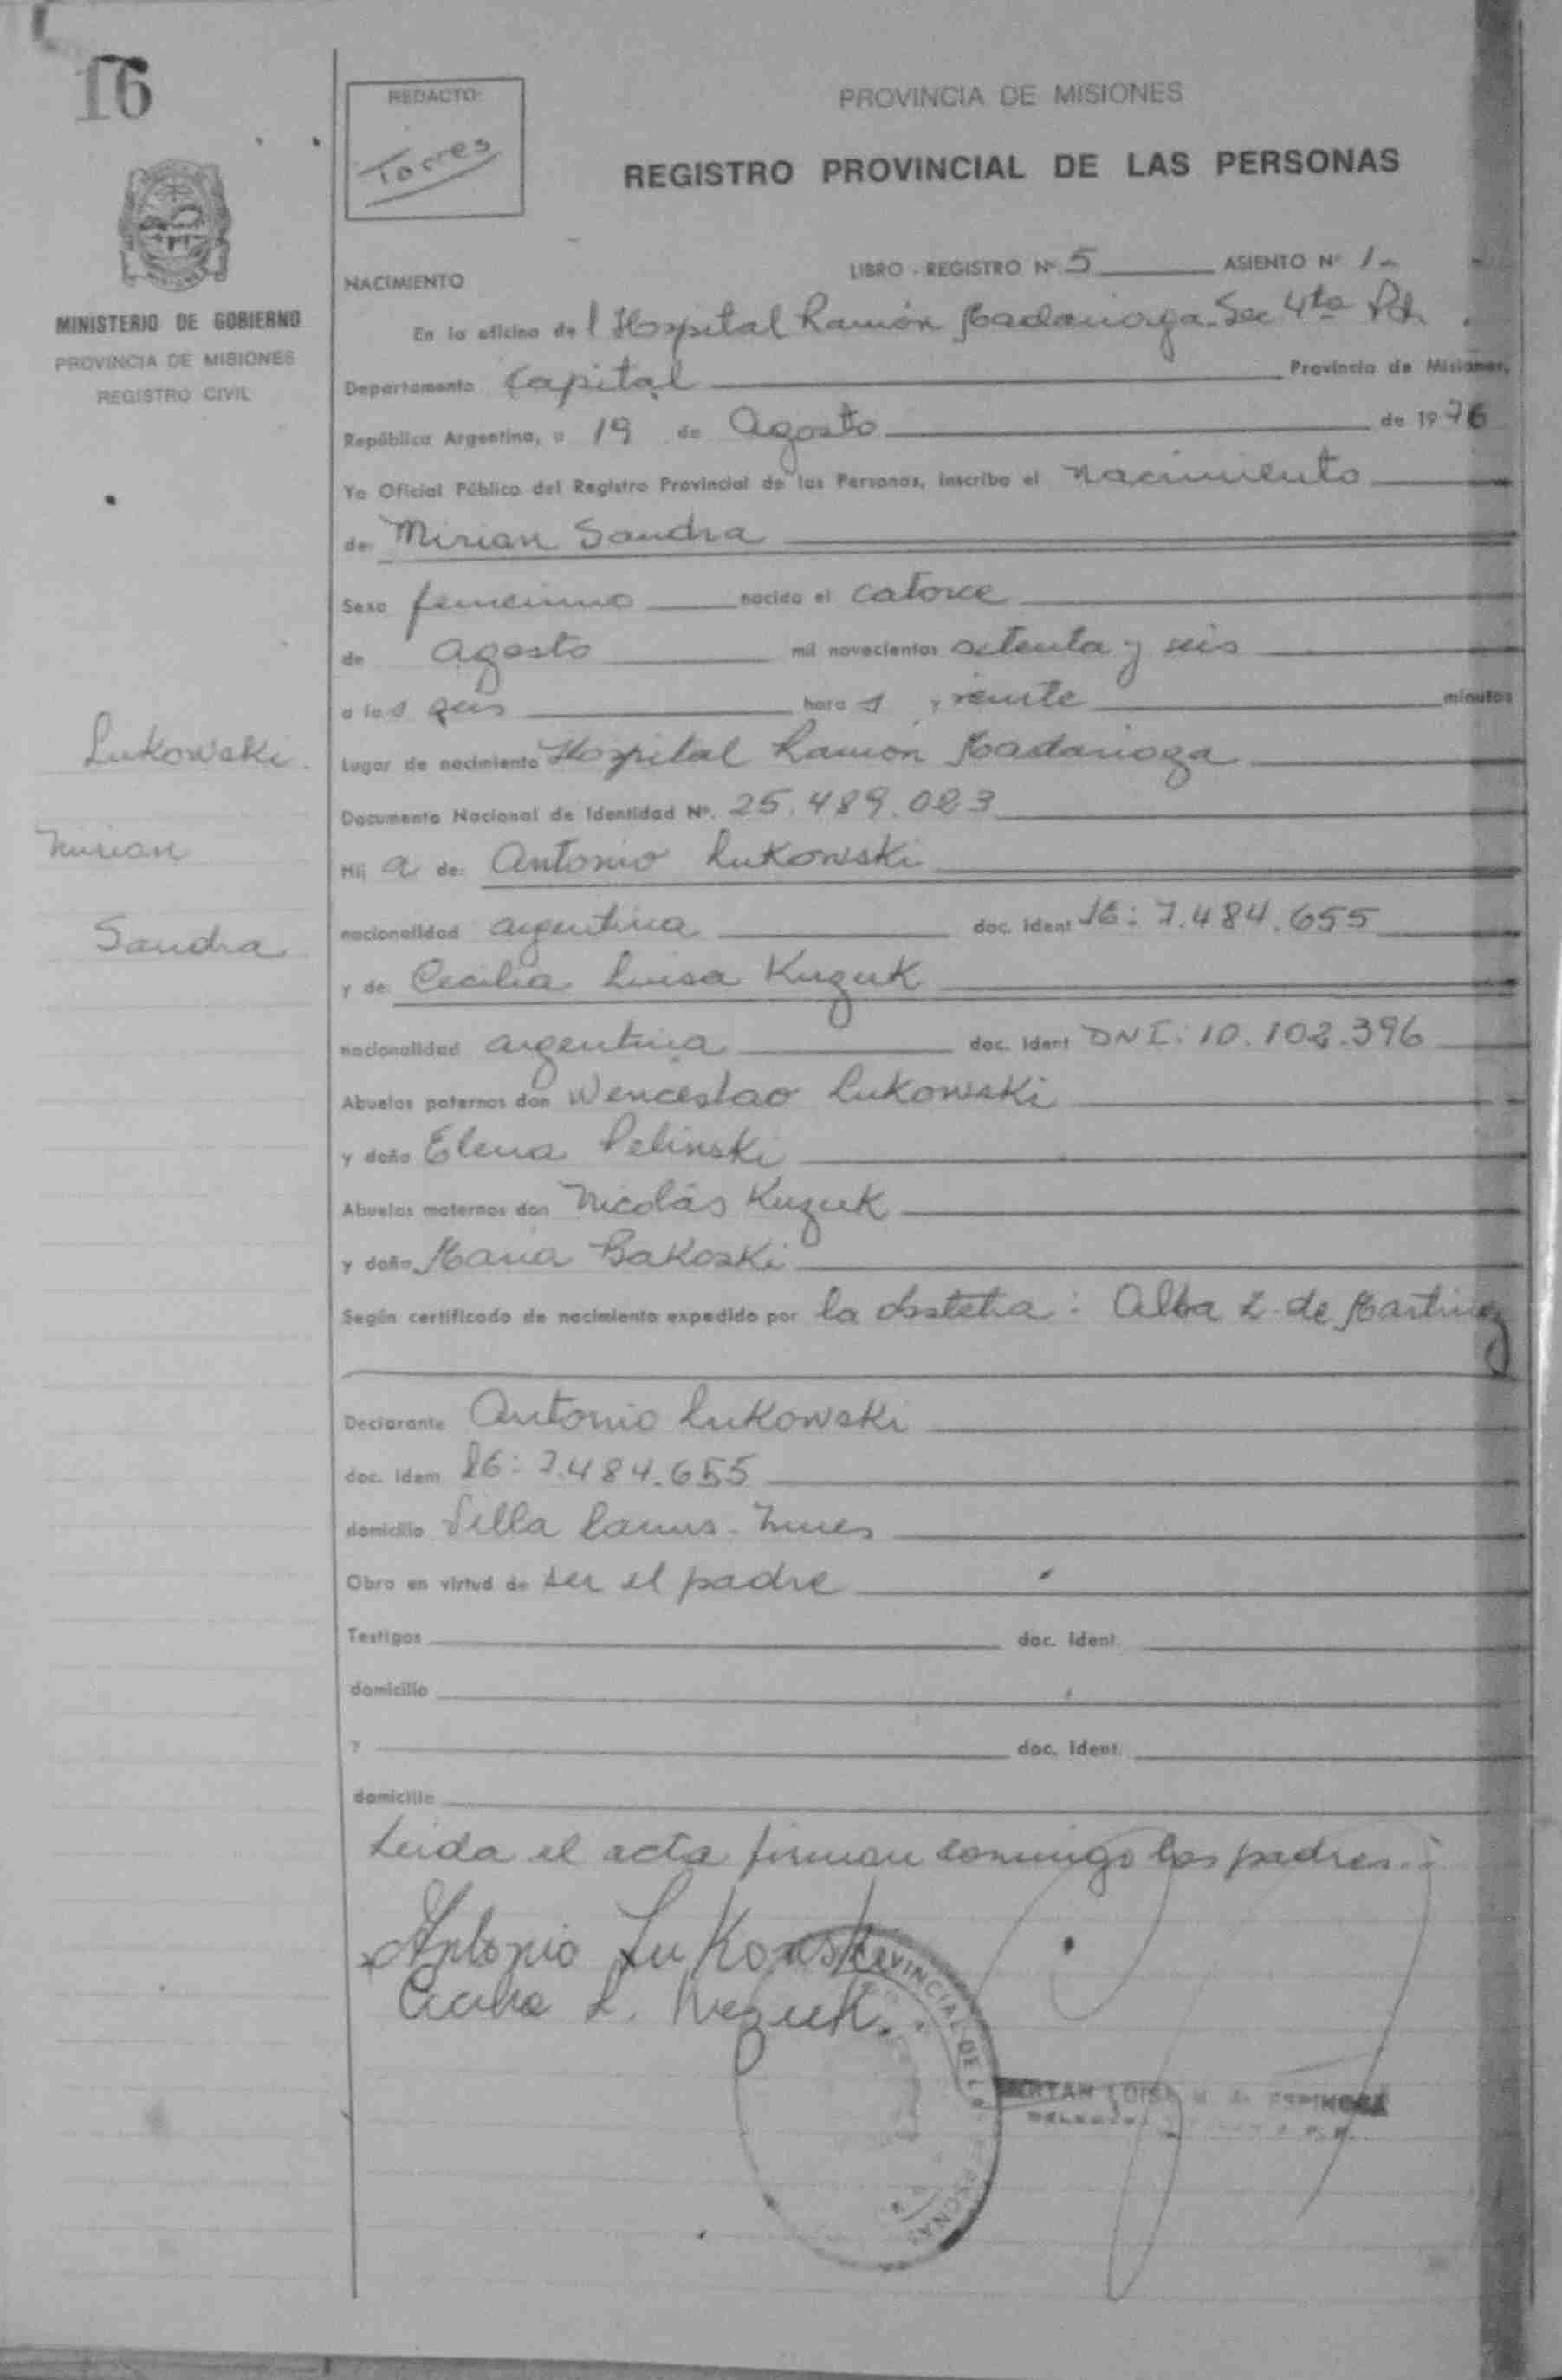 16
REDACTO:
Torres
PROVINCIA DE MISIONES
REGISTRO PROVINCIAL DE LAS PERSONAS
MINISTERIO DE GOBIERNO
PROVINCIA DE MISIONES
REGISTRO CIVIL
NACIMIENTO
LIBRO - REGISTRO Nº 5 ASIENTO Nº 1-
En la oficina del Hospital Ramón Madariaga - Sec 4ta
Departamento Capital Provincia de Misiones,
República Argentina, a 19 de Agosto de 1976
Yo Oficial Público del Registro Provincial de las Personas, inscribo el nacimiento
de: Mirian Sandra
Sexo femenino nacido el catorce
de agosto mil novecientos setenta y seis
a las seis horas y veinte minutos
Lugar de nacimiento Hospital Ramón Madariaga
Documento Nacional de Identidad Nº. 25.489.023
Hija de: Antonio Lukowski
nacionalidad argentina doc. Ident 7.484.655
y de: Cecilia Luisa Kuzuk
nacionalidad argentina doc. Ident DNI. 10.102.396
Abuelos paternos don Wenceslao Lukowski
y doña Elena Pelinski
Abuelos maternos don Nicolás Kuzuk
y doña María Bakoski
Según certificado de nacimiento expedido por la obstetra: Alba L. de Martinez
Declarante Antonio Lukowski
doc. Idem 7.484.655
domicilio Villa Lanus - Mnes
Obra en virtud de ser el padre
Testigos doc. Ident.
domicilio
y doc. Ident.
domicilio
Leida el acta firman conmigo los padres.:
Antonio Lukowski
Cecilia L. Kuzuk.
Lukowski.
Mirian
Sandra